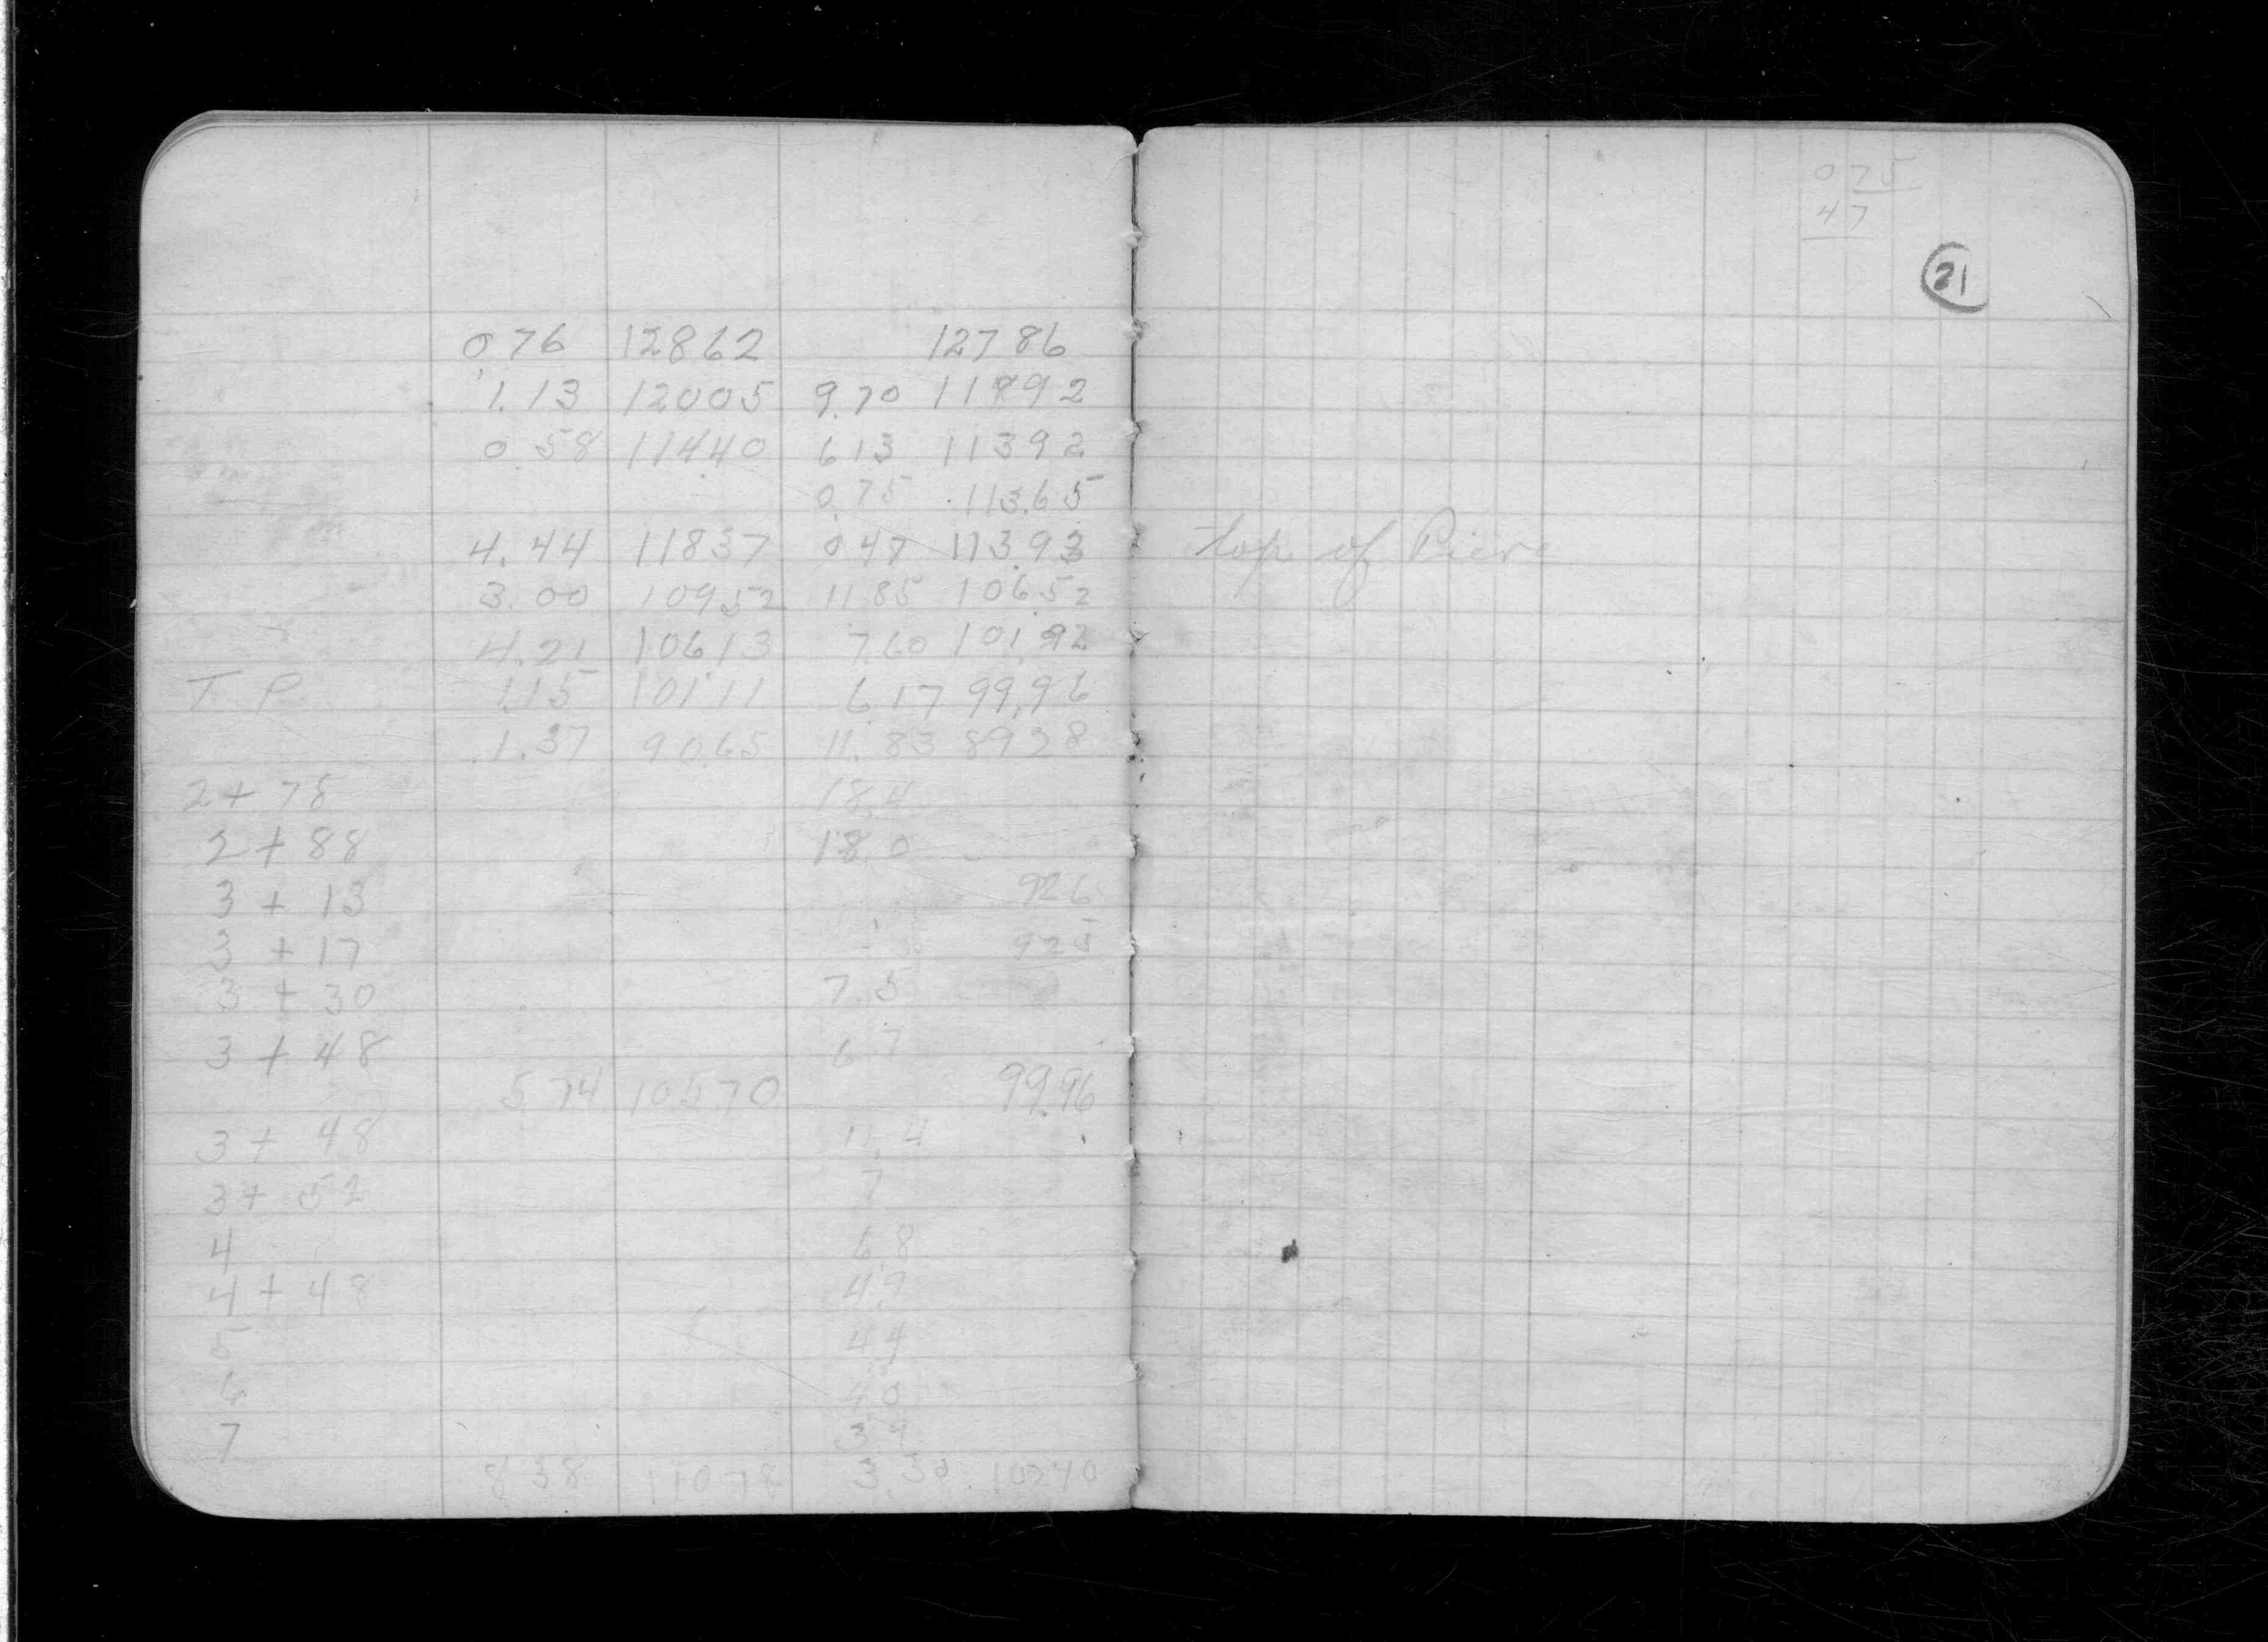 0.76 12862 12786
1.13 12005 9.70 11892
0.58 11440 613 11392
0.75 113.65
4.44 11837 047 113.93 top of Piers
3.00 10952 11.85 106.52
4.21 10613 7.60 101.92
T. P. 1.15 101.11 6.17 99.96
1.37 90.65 11.83 89.28
2+ 78 18.4
2 + 88 18.0
3 + 13 926
3 + 17 925
3 + 30 7.5
3 + 48 6.7
5.74 105.70 99.96
3 + 48 11.4
3+ 52 7
4 6.8
4 + 48 4.9
5 4.4
6 4.0
7 3.9
8.38 110.78 3.30 102.40
0 75
47
21